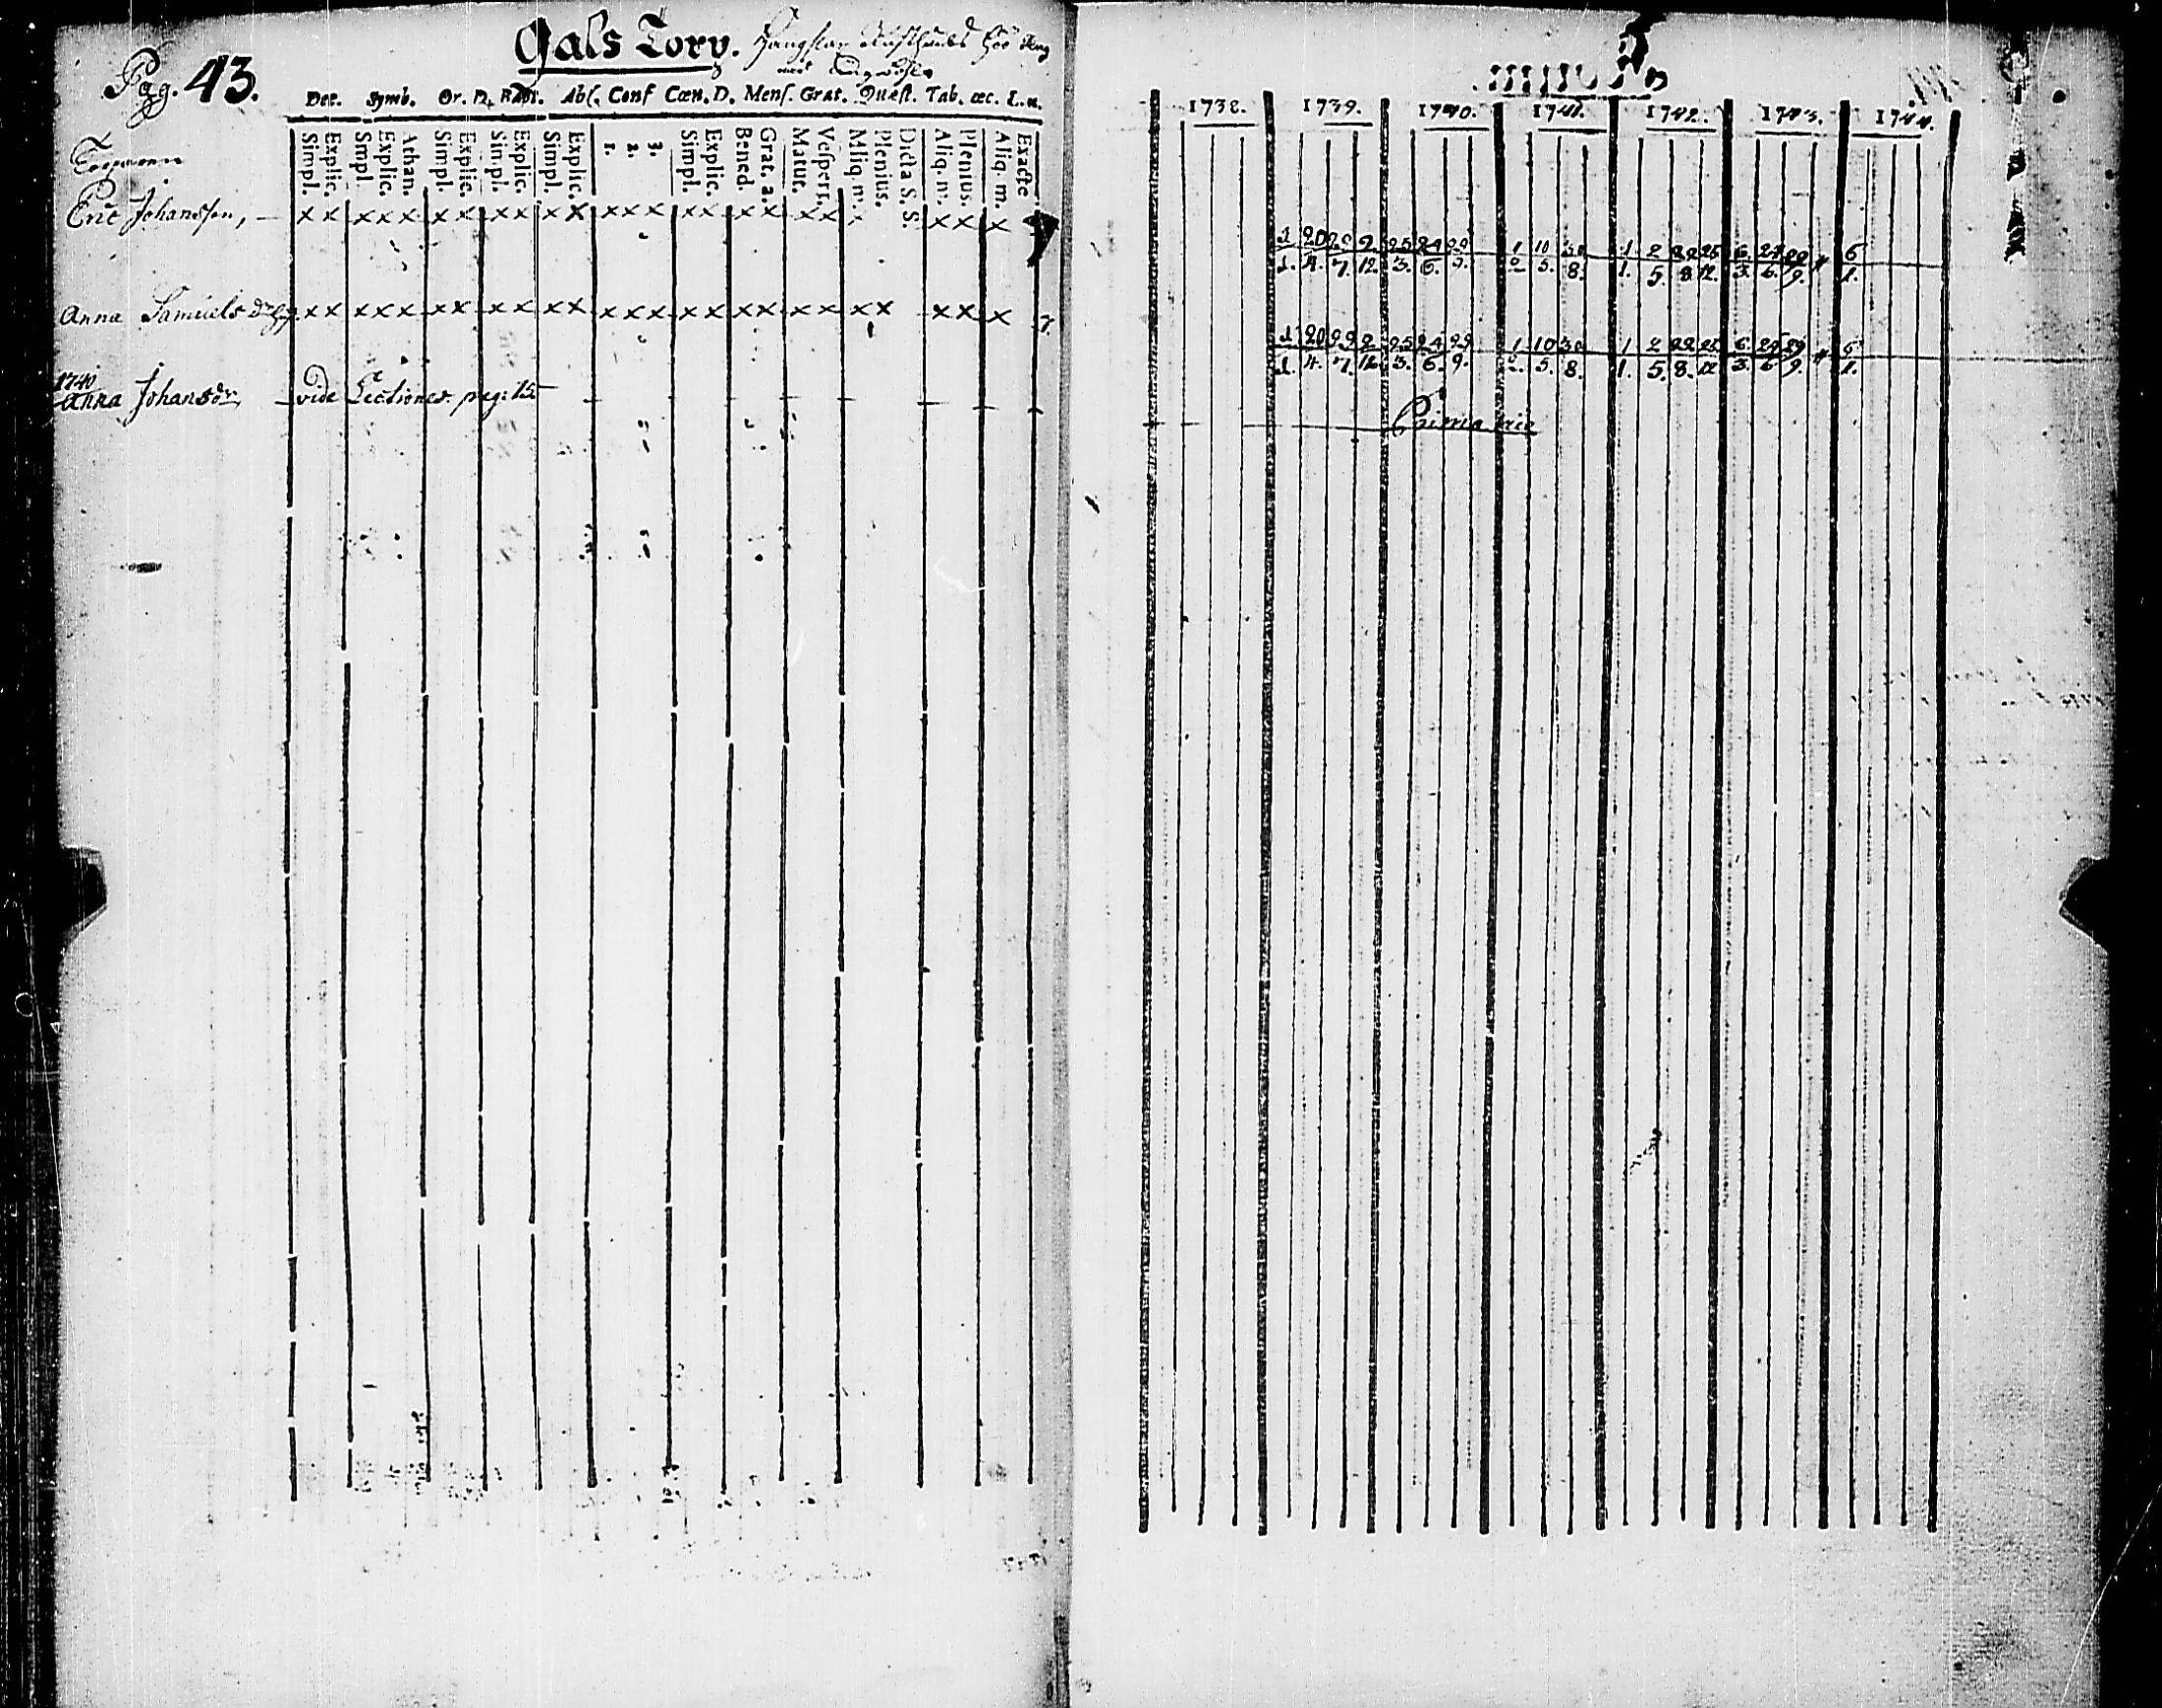 Pag. 43.
Gals Torp.
Dec. Symb. Or. D. Bapt. Abs. Conf Cœn. D. Mens. Grat. Quæst. Tab. œc. L. u.
Simpl. Explic. Simpl. Explic. Athan. Simpl. Explic. Simpl. Explic. Simpl. Explic. 1. 2. 3. Simpl. Explic. Bened. Grat. a. Matut. Vespert. Aliq. m. Plenius. Dicta S. S. Aliq. m. Plenius. Aliq. m. Exacte
Eric Johansson, x x x x x x x x x x x x x x x x x x x x x x x x
Anna Samuels x x x x x x x x x x x x x x x x x x x x x x x x
1740
Anna Johansdr vide Lectiones. pag: 15
1738. 1739. 1740. 1741. 1742. 1743. 1744.
1 20 2 25 24 29 1 10 30 1 2 22 25 6 24 29 6
1. 4. 7. 12. 3. 6. 9. 2. 5. 8. 1. 5. 8. 12. 3. 6. 9. 1.
1 20 29 2 25 24 29 1 10 30 1 2 22 25 6 24 29 6
1. 4. 7. 12. 3. 6. 9. 2. 5. 8. 1. 5. 8. 12. 3. 6. 9. 1.